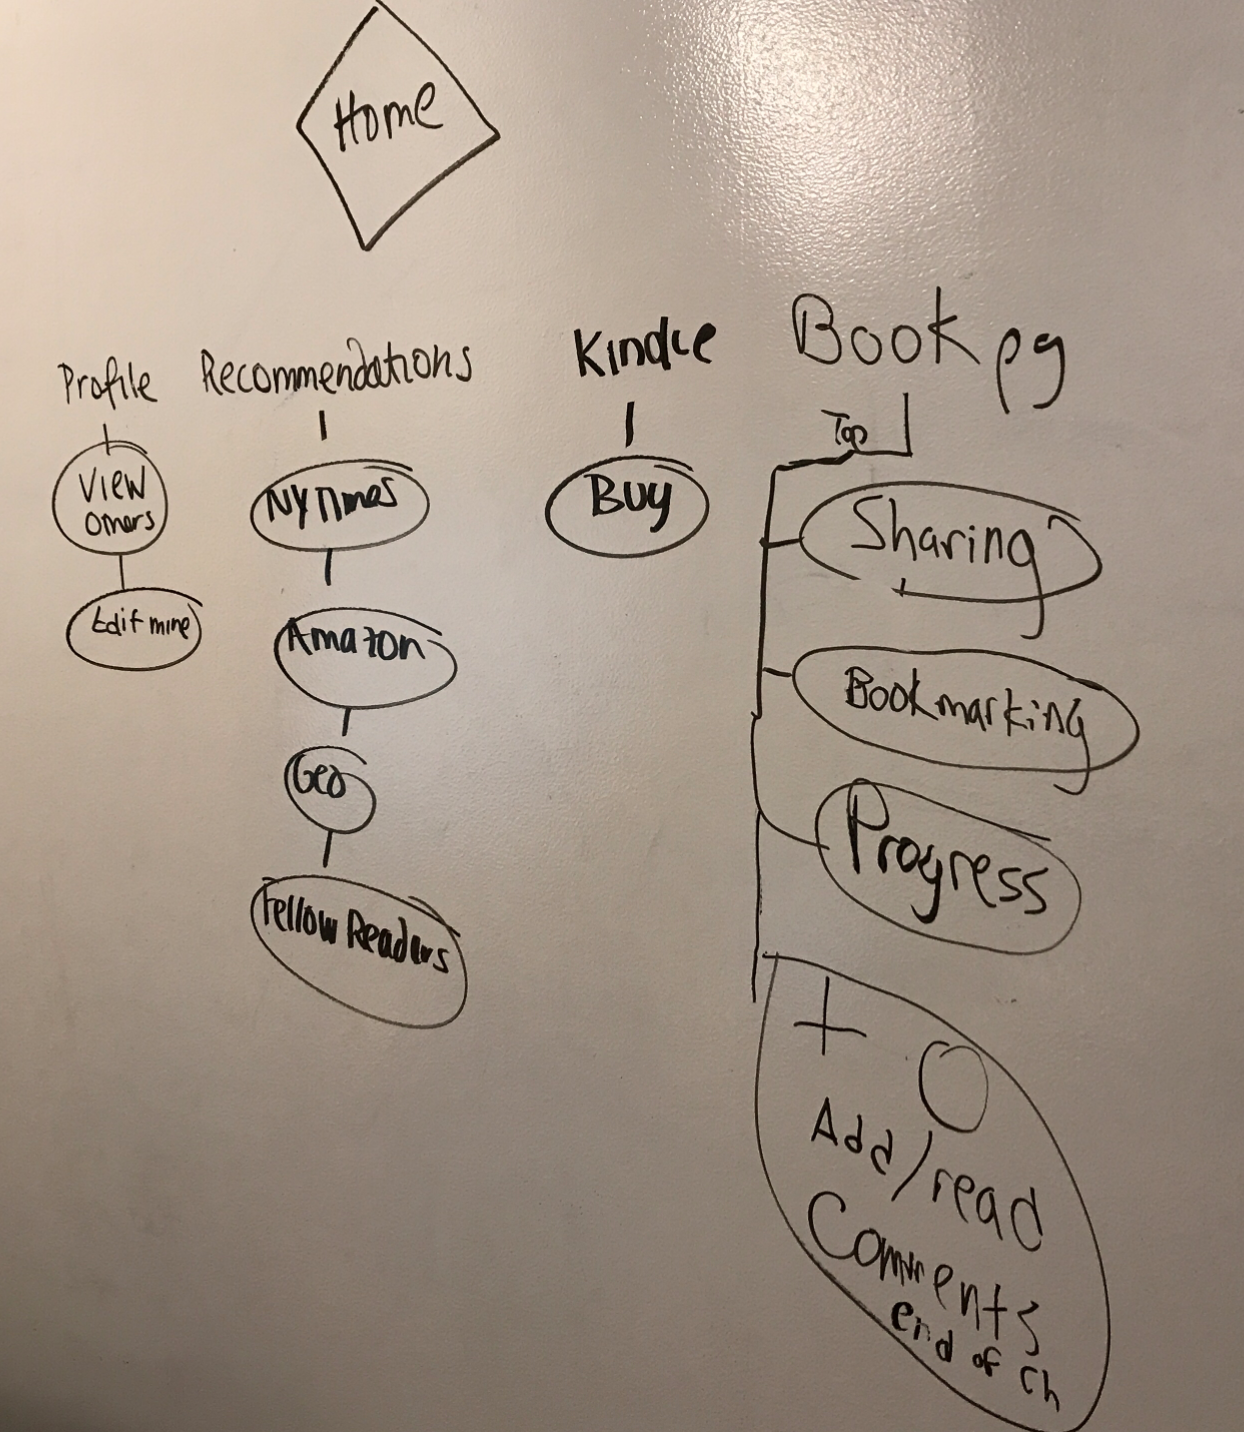 Home
Profile
View
Others
Edit mine
Recommendations
NY Times
Amazon
Geo
Fellow Readers
Kindle
Buy
Book pg
Top
Sharing
Bookmarking
Progress
+
Add/read
Comments
end of ch